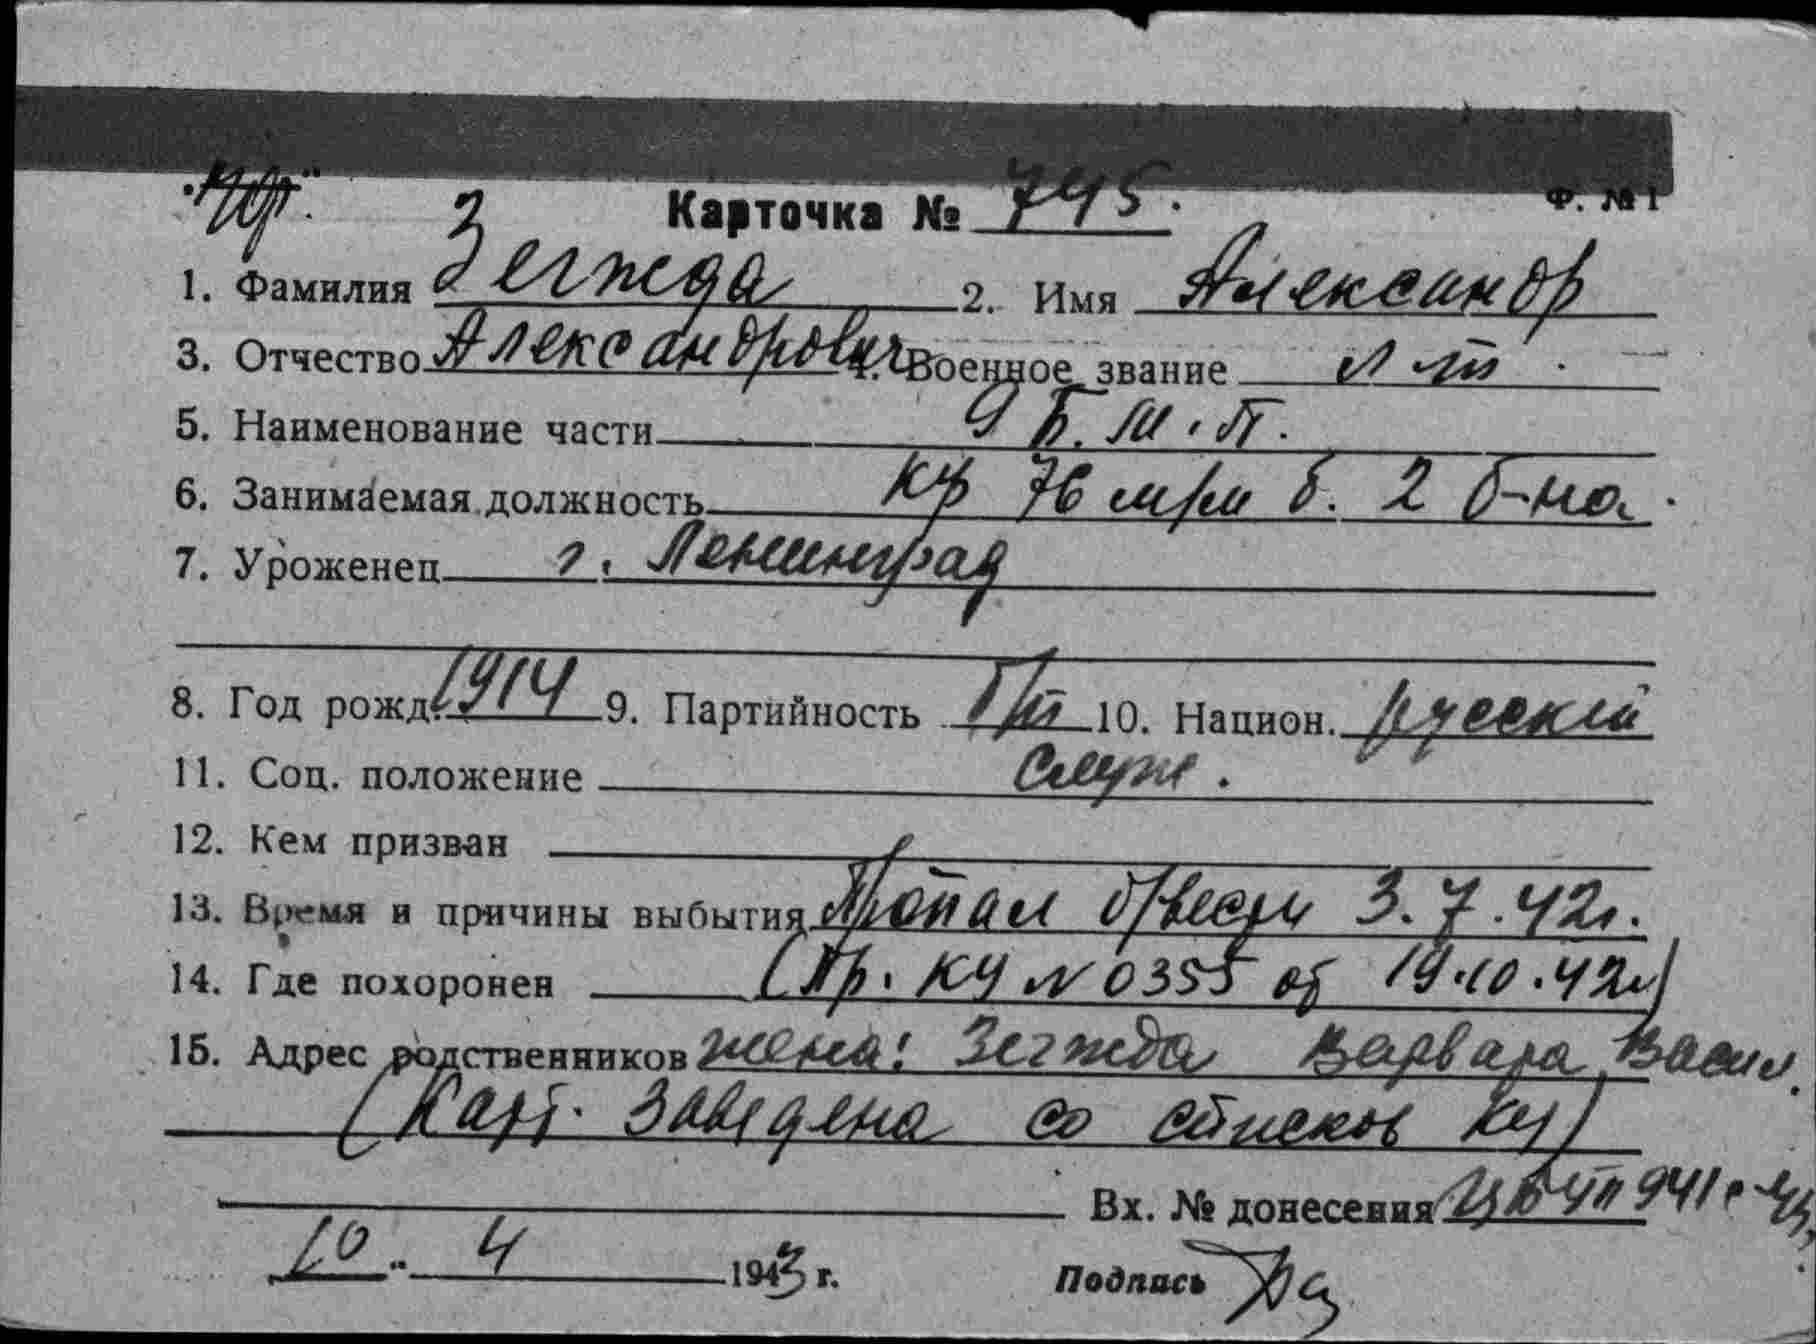 Ф. № 1
Карточка № 745.
1. Фамилия Зегжда 2. Имя Александр
3. Отчество Александрович 4. Военное звание л-т.
5. Наименование части 9 Б.М.П.
6. Занимаемая должность 76 м/м б. 2 б-на.
7. Уроженец г. Ленинград
8. Год рожд. 1914 9. Партийность б/п 10. Национ. русский
11. Соц. положение Служ.
12. Кем призван
13. Время и причины выбытия Пропал б/вести 3.7.42г.
14. Где похоронен (Пр. КУ № 0355 от 19.10.42г)
15. Адрес родственников жена: Зегжда Варвара Васил.
(Карт. заведена со списков КУ)
Вх. № донесения 941
10 " 4 1943 г. Подпись